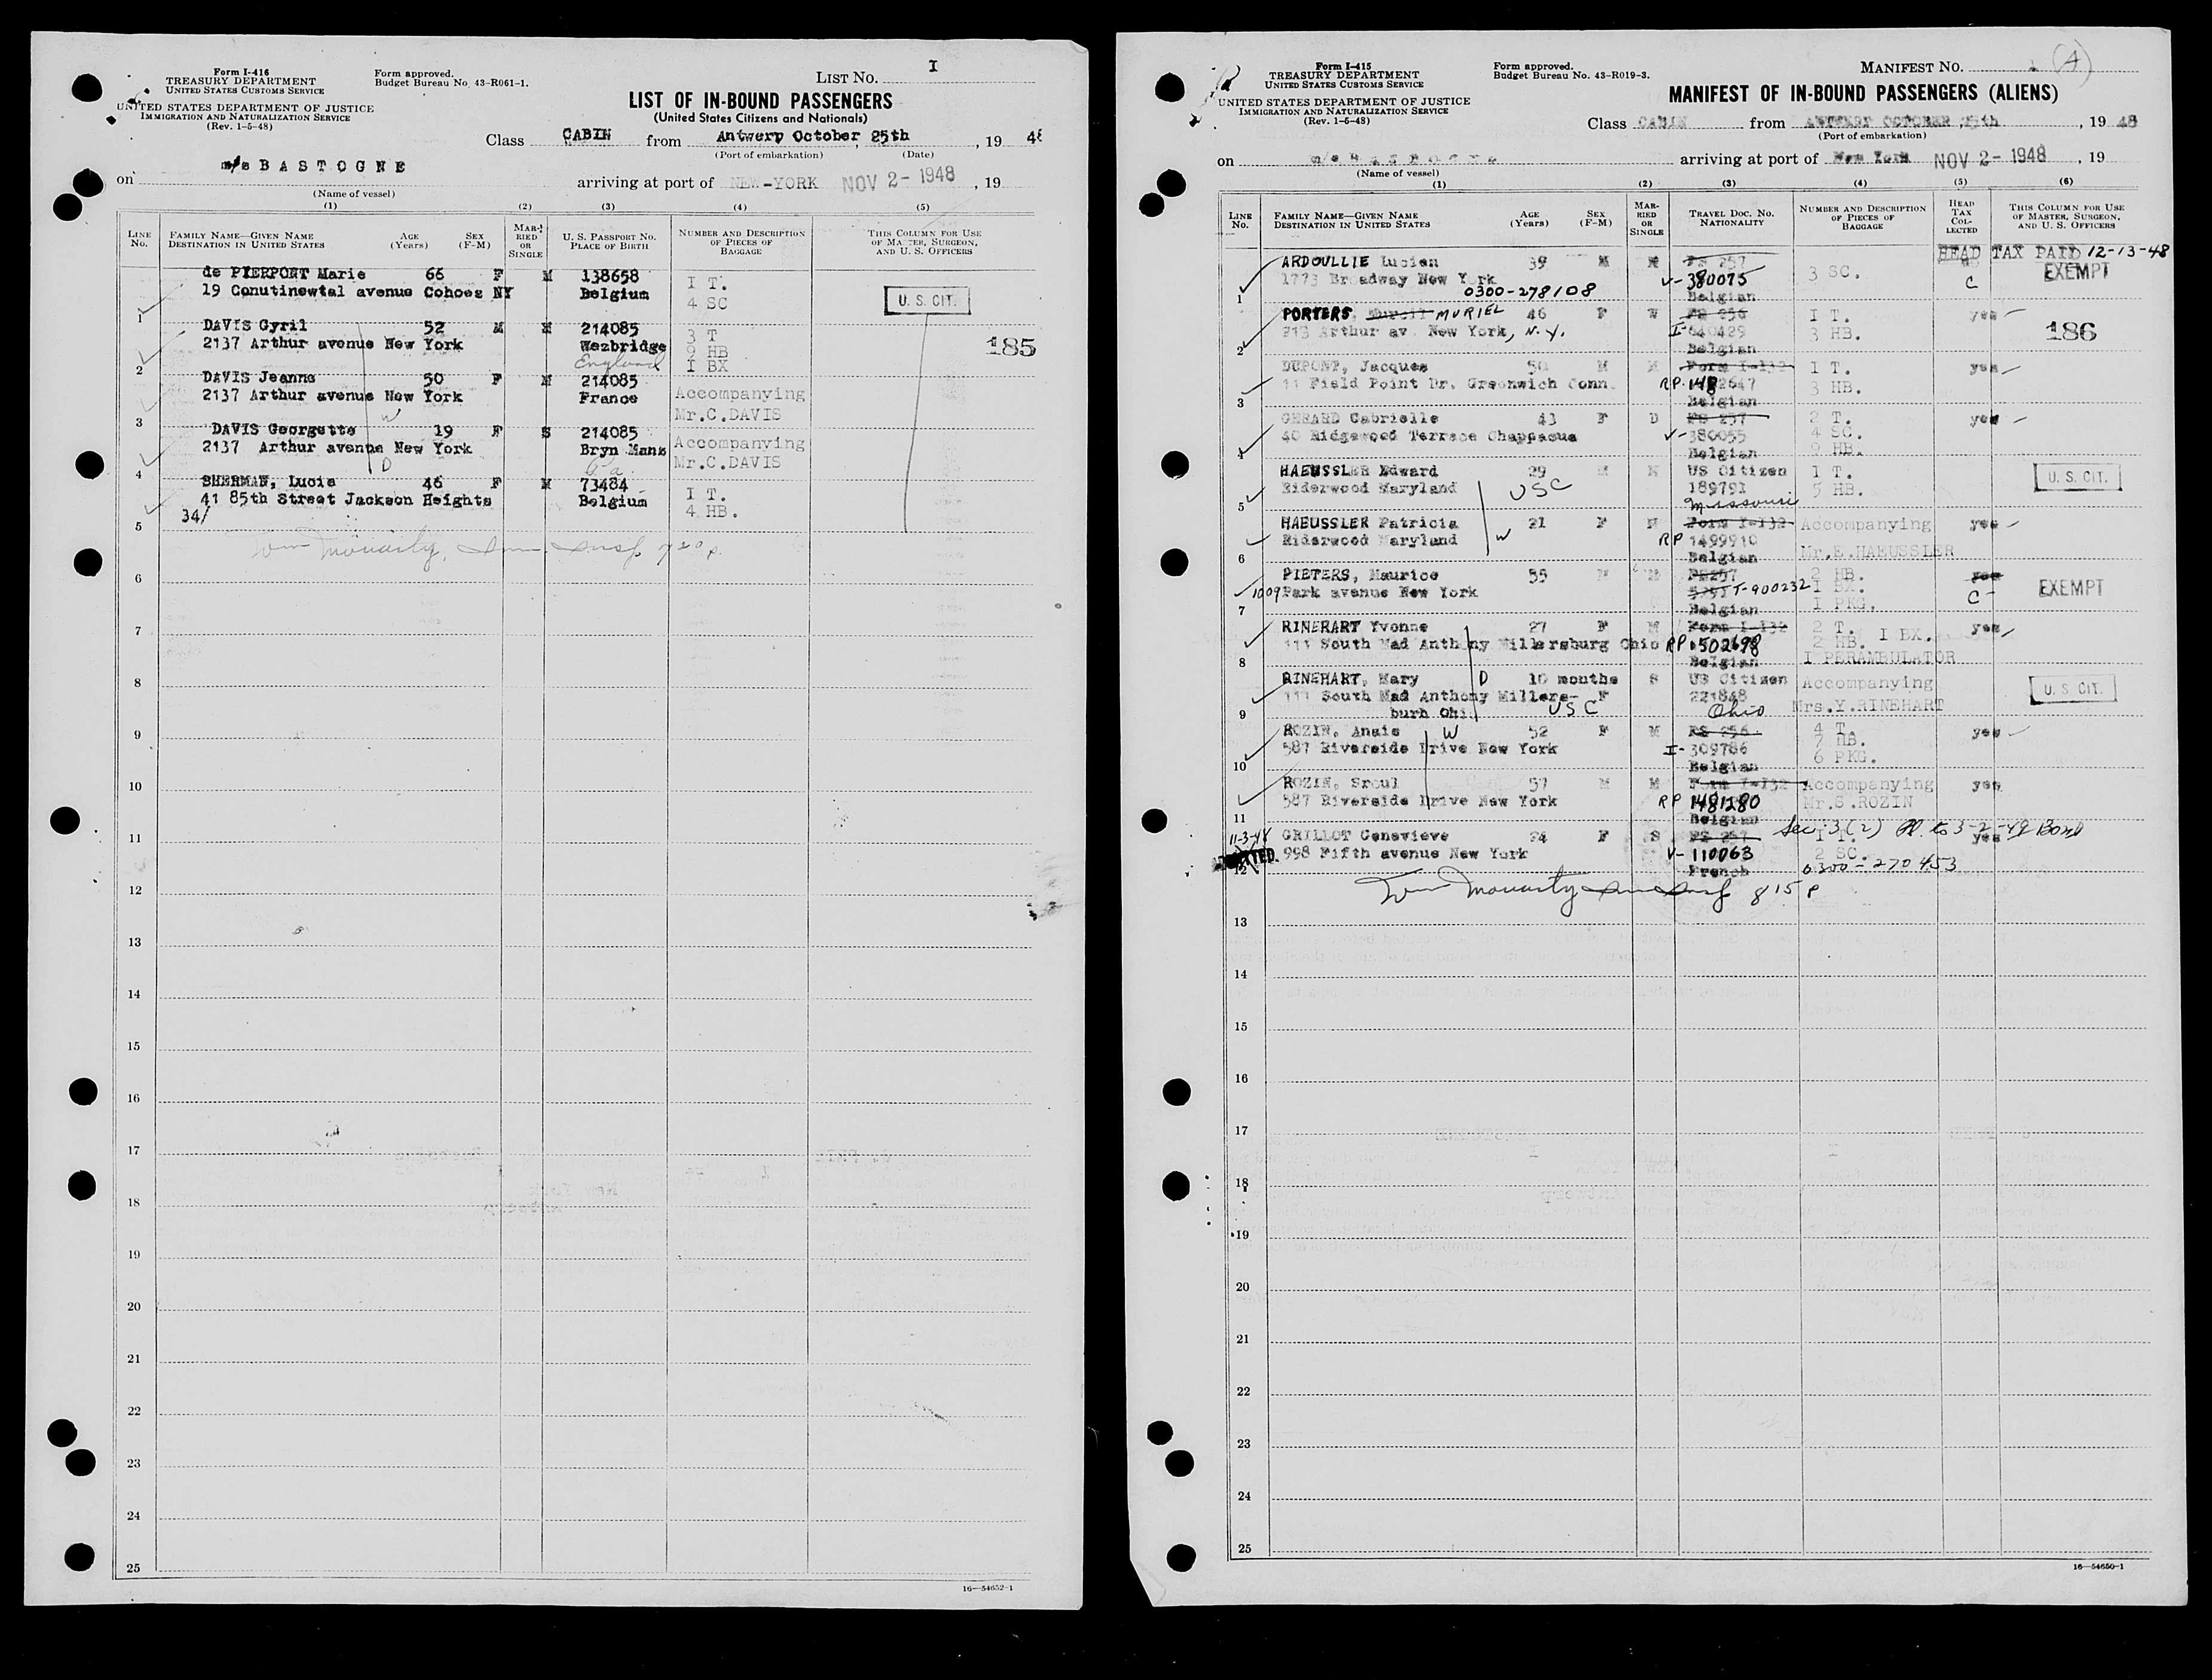 Form I-416
TREASURY DEPARTMENT
UNITED STATES CUSTOMS SERVICE
Form approved.
Budget Bureau No. 43-R061-1.
LIST NO. I
UNITED STATES DEPARTMENT OF JUSTICE
IMMIGRATION AND NATURALIZATION SERVICE
(Rev. 1-5-48)
LIST OF IN-BOUND PASSENGERS
(United States Citizens and Nationals)
Class CABIN from Antwerp October 25th, 19 48
(Port of embarkation) (Date)
on m/s BASTOGNE arriving at port of NEW-YORK NOV 2- 1948, 19
(Name of vessel)
(1) (2) (3) (4) (5)
LINE No. FAMILY NAME—GIVEN NAME DESTINATION IN UNITED STATES AGE (Years) SEX (F-M) MARRIED OR SINGLE U. S. PASSPORT NO. PLACE OF BIRTH NUMBER AND DESCRIPTION OF PIECES OF BAGGAGE THIS COLUMN FOR USE OF MASTER, SURGEON, AND U. S. OFFICERS
de PIERPONT Marie 66 F M 138658 I T.
19 Conutinewtal avenue Cohoes NY Belgium 4 SC U. S. CIT.
1
DAVIS Cyril 52 M M 214085 3 T
2137 Arthur avenue New York Wezbridge 9 HB 185
England I BX
2
DAVIS Jeanne 50 F M 214085 Accompanying
2137 Arthur avenue New York France Mr.C.DAVIS
W
3
DAVIS Georgette 19 F S 214085 Accompanying
2137 Arthur avenue New York Bryn Mans Mr.C.DAVIS
D Pa.
4
SHERMAN, Lucie 46 F M 73484 I T.
41 85th Street Jackson Heights Belgium 4 HB.
34/
5
Wm Moriarty, Imm Insp. 7 20 p.
6
7
8
9
10
11
12
13
14
15
16
17
18
19
20
21
22
23
24
25
16—54652-1
Form I-415
TREASURY DEPARTMENT
UNITED STATES CUSTOMS SERVICE
Form approved.
Budget Bureau No. 43-R019-3.
MANIFEST NO. 1 (A)
UNITED STATES DEPARTMENT OF JUSTICE
IMMIGRATION AND NATURALIZATION SERVICE
(Rev. 1-5-48)
MANIFEST OF IN-BOUND PASSENGERS (ALIENS)
Class CABIN from ANTWERP OCTOBER 25th, 19 48
(Port of embarkation)
on m/s BASTOGNE arriving at port of New York NOV 2- 1948, 19
(Name of vessel)
(1) (2) (3) (4) (5) (6)
LINE No. FAMILY NAME—GIVEN NAME DESTINATION IN UNITED STATES AGE (Years) SEX (F-M) MARRIED OR SINGLE TRAVEL DOC. NO. NATIONALITY NUMBER AND DESCRIPTION OF PIECES OF BAGGAGE HEAD TAX COLLECTED THIS COLUMN FOR USE OF MASTER, SURGEON, AND U. S. OFFICERS
HEAD TAX PAID 12-13-48
ARDOULLIE Lucien 39 M M FS 257 3 SC. EXEMPT
1773 Broadway New York V-380075 C
0300-278108 Belgian
1
PORTERS, MURIEL 46 F W FS 256 I T. yes
213 Arthur av. New York, N.Y. I-640429 3 HB. 186
Belgian
2
DUPONT, Jacques 50 M M Form I-132 I T. yes
11 Field Point Dr. Greenwich Conn. RP. 3 HB.
Belgian
3
GERARD Cabrielle 43 F D FS 257 2 T. yes
40 Ridgewood Terrace Chappaqua V-380055 4 SC.
Belgian 9 HB.
4
HAEUSSLER Edward 29 M M US Citizen 1 T. U. S. CIT.
Riderwood Maryland USC 189791 5 HB.
Missouri
5
HAEUSSLER Patricia 21 F M Form I-132 Accompanying yes
Riderwood Maryland W RP 1499910 Mr.E.HAEUSSLER
Belgian
6
PIETERS, Maurice 55 M M FS257 2 HB. yes
1009 Park avenue New York T-900232 I BX. C EXEMPT
Belgian I PKG.
7
RINERART Yvonne 27 F M Form I-132 2 T. yes
111 South Mad Anthony Millersburg Ohio RP 1502698 2 HB. I BX.
Belgian I PERAMBULATOR
8
RINEHART, Mary D 10 months S US Citizen Accompanying U. S. CIT.
111 South Mad Anthony Millers- F 221848 Mrs.Y.RINEHART
burh Ohi USC Ohio
9
ROZIN, Anais W 52 F M FS 256 4 T. yes
587 Riverside Drive New York I-309786 7 HB.
Belgian 6 PKG.
10
ROZIN, Sroul 57 M M Form I-132 Accompanying yes
587 Riverside Drive New York RP 1481280 Mr.S.ROZIN
Belgian
11
11-3-48 GRILLOT Genevieve 24 F S FS 257 I T. yes Sec. 3(2) to 3-2-49 Bond
ADMITTED. 998 Fifth avenue New York V-110063 2 SC. 0300-270453
French
12
Wm Moriarty Imm Insp 8 15 P
13
14
15
16
17
18
19
20
21
22
23
24
25
16—54650-1